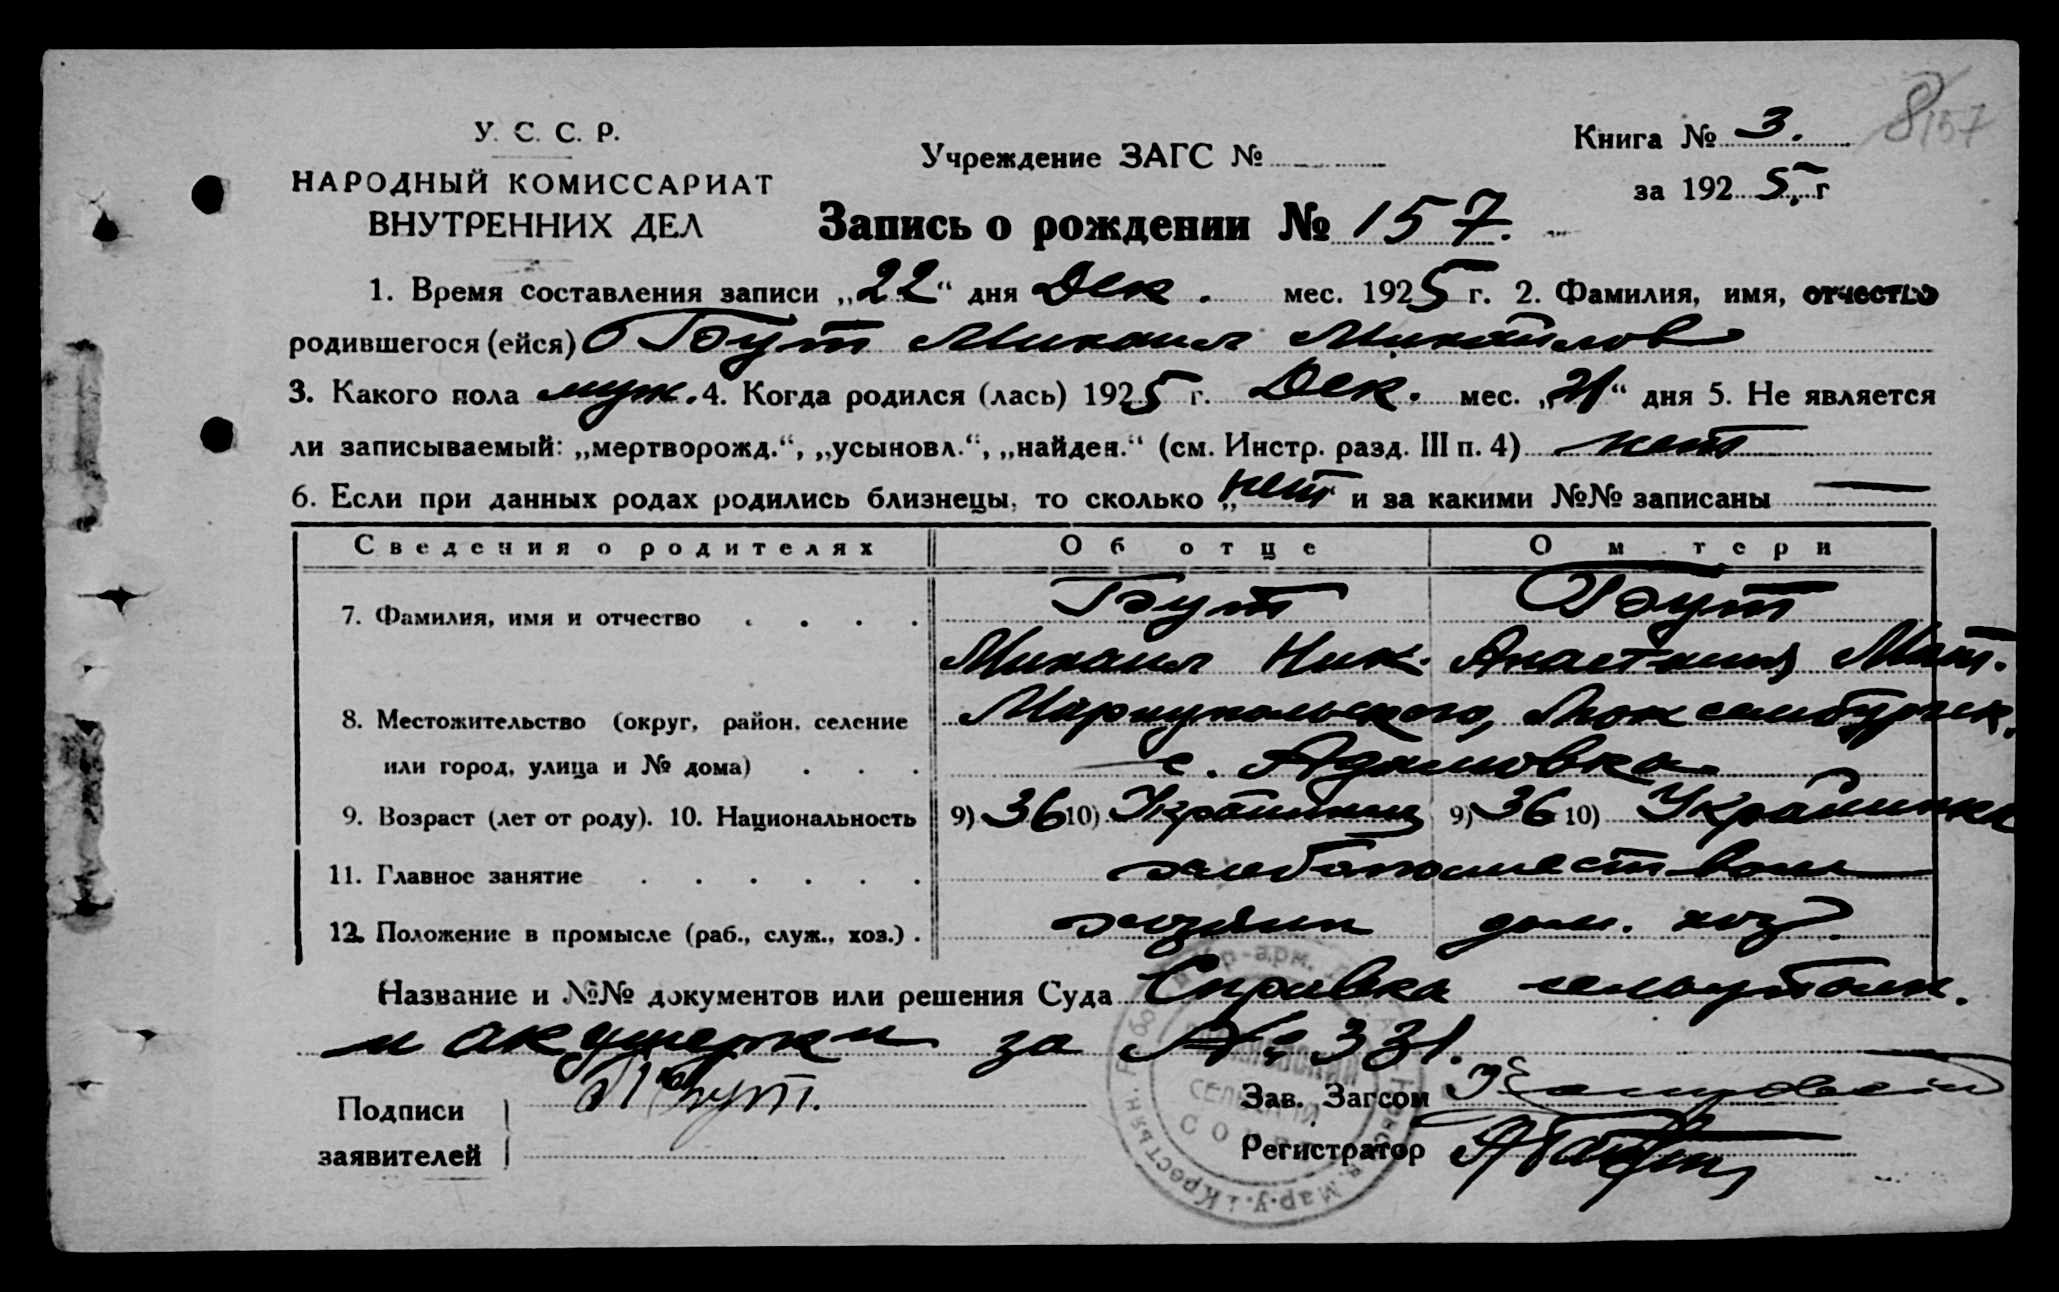 У. С. С. Р.
НАРОДНЫЙ КОМИССАРИАТ
ВНУТРЕННИХ ДЕЛ
Учреждение ЗАГС №
Книга № 3.
8/157
за 1925 г
Запись о рождении № 157.
1. Время составления записи „22“ дня Дек. мес. 1925 г. 2. Фамилия, имя, отчество
родившегося (ейся) Бут Михаил Михайлов
3. Какого пола муж. 4. Когда родился (лась) 1925 г. Дек. мес. „21“ дня 5. Не является
ли записываемый: „мертворожд.“, „усыновл.“, „найден.“ (см. Инстр. разд. III п. 4) нет
6. Если при данных родах родились близнецы, то сколько „нет и за какими №№ записаны —
Сведения о родителях Об отце О м тери
7. Фамилия, имя и отчество . . . . Бут Бут
Михаил Ник. Анастасия Мат.
8. Местожительство (округ, район, селение Мариупольского, Люксембургск.
или город, улица и № дома) . . . с. Адамовка
9. Возраст (лет от роду). 10. Национальность 9) 36 10) Украинец 9) 36 10) Украинка
11. Главное занятие . . . . . . хлебопашеством
12. Положение в промысле (раб., служ., хоз.) . хозяин дом. хоз.
Название и №№ документов или решения Суда Справка сельуполн.
и акушерки за № 331.
Подписи М Бут.
заявителей
Зав. Загсом
Регистратор
СЕЛЬСКИЙ
СОВЕТ